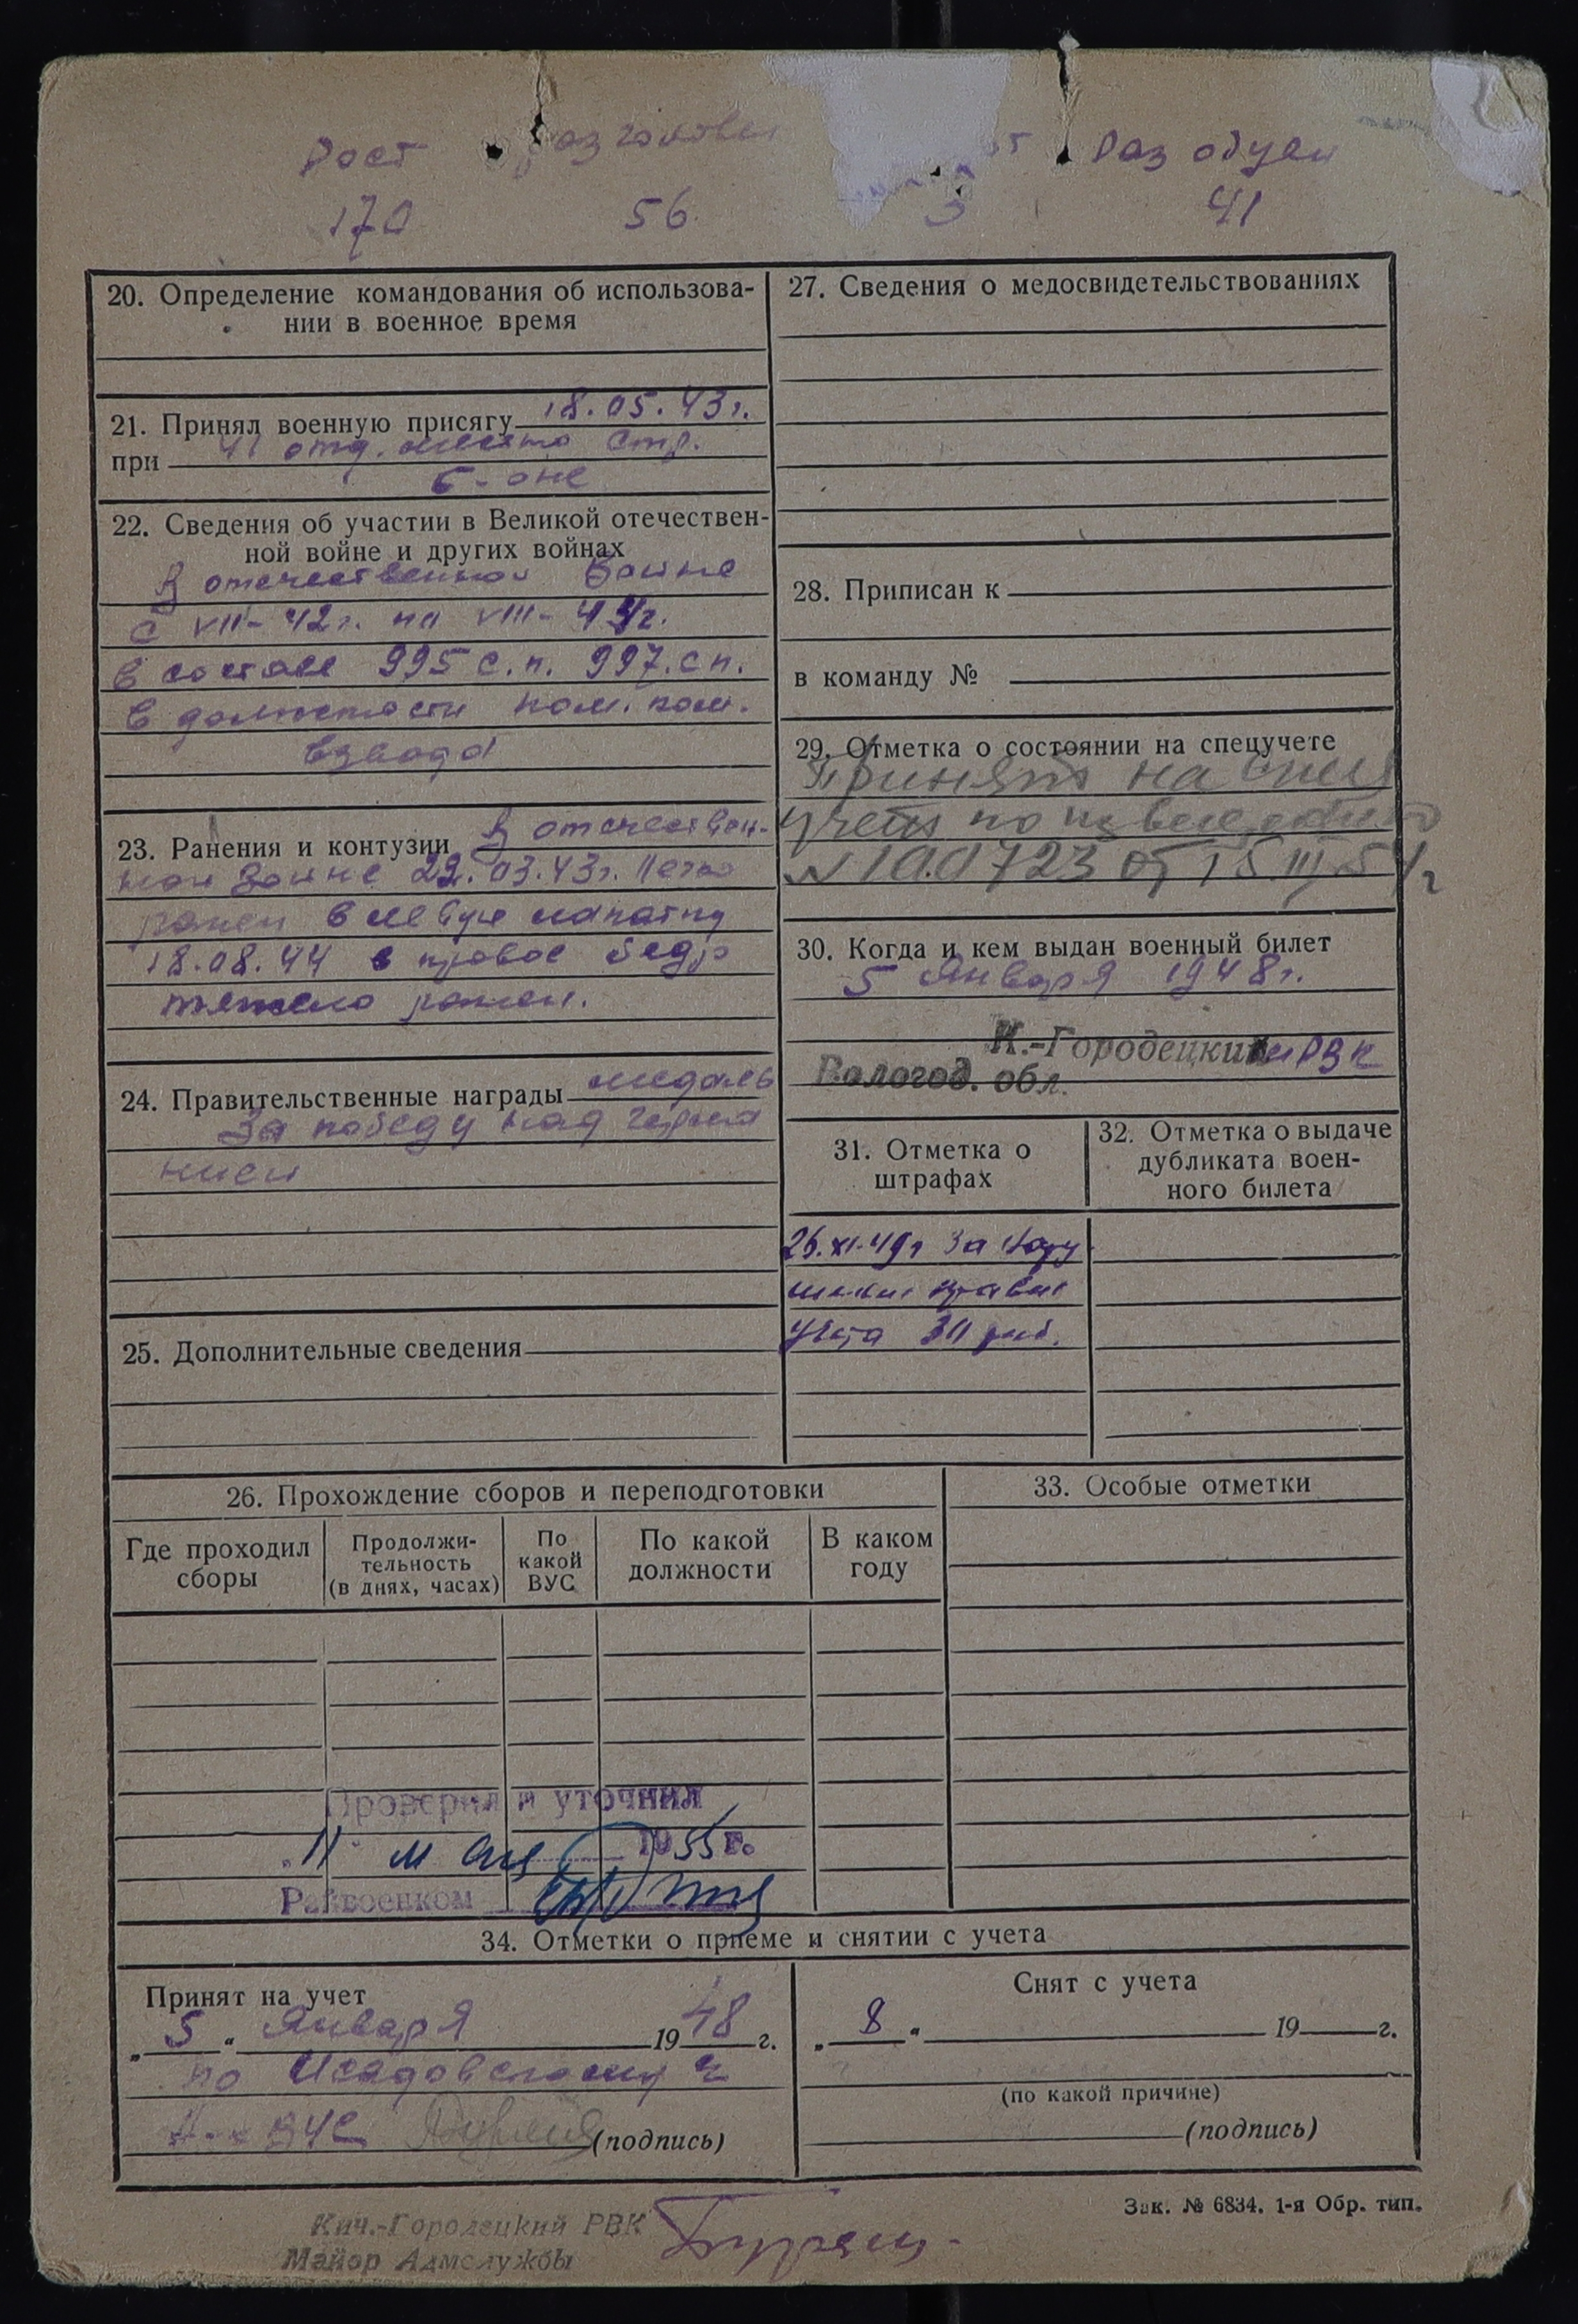 Рост Раз головы Раз обуви
170 56 3 41
20. Определение командования об использова-
нии в военное время
21. Принял военную присягу 18.05.43г.
при 41 отд. стр.
б-оне
22. Сведения об участии в Великой отечествен-
ной войне и других войнах
В отечественной войне
с VII-42г. по VIII-44г.
в составе 995 с.п. 997. с п.
в должности пом. ком.
взвода
23. Ранения и контузии В отечествен-
ной войне 22.03.43г. легко
ранен в левую лопатку
18.08.44 в правое бедро
тяжело ранен.
24. Правительственные награды медаль
За победу над Герма
нией
25. Дополнительные сведения
26. Прохождение сборов и переподготовки
Где проходил сборы
Продолжи-
тельность
(в днях, часах)
По
какой
ВУС
По какой
должности
В каком
году
Проверил и уточнил
"11" мая 1955 г.
Райвоенком
27. Сведения о медосвидетельствованиях
28. Приписан к
в команду №
29. Отметка о состоянии на спецучете
Принят на спец
учет по
N 100723 от 15.III.54г
30. Когда и кем выдан военный билет
5 Января 1948г.
К.-Городецким РВК
Вологод. обл.
31. Отметка о
штрафах
26.XI.49г За нару
шение правил
учета 30 руб.
32. Отметка о выдаче
дубликата воен-
ного билета
33. Особые отметки
34. Отметки о приеме и снятии с учета
Принят на учет
„5" Января 1948 г.
по
ВУС (подпись)
Снят с учета
„8" 19 г.
(по какой причине)
(подпись)
Зак. № 6834. 1-я Обр. тип.
Кич.-Городецкий РВК
Майор Адмслужбы